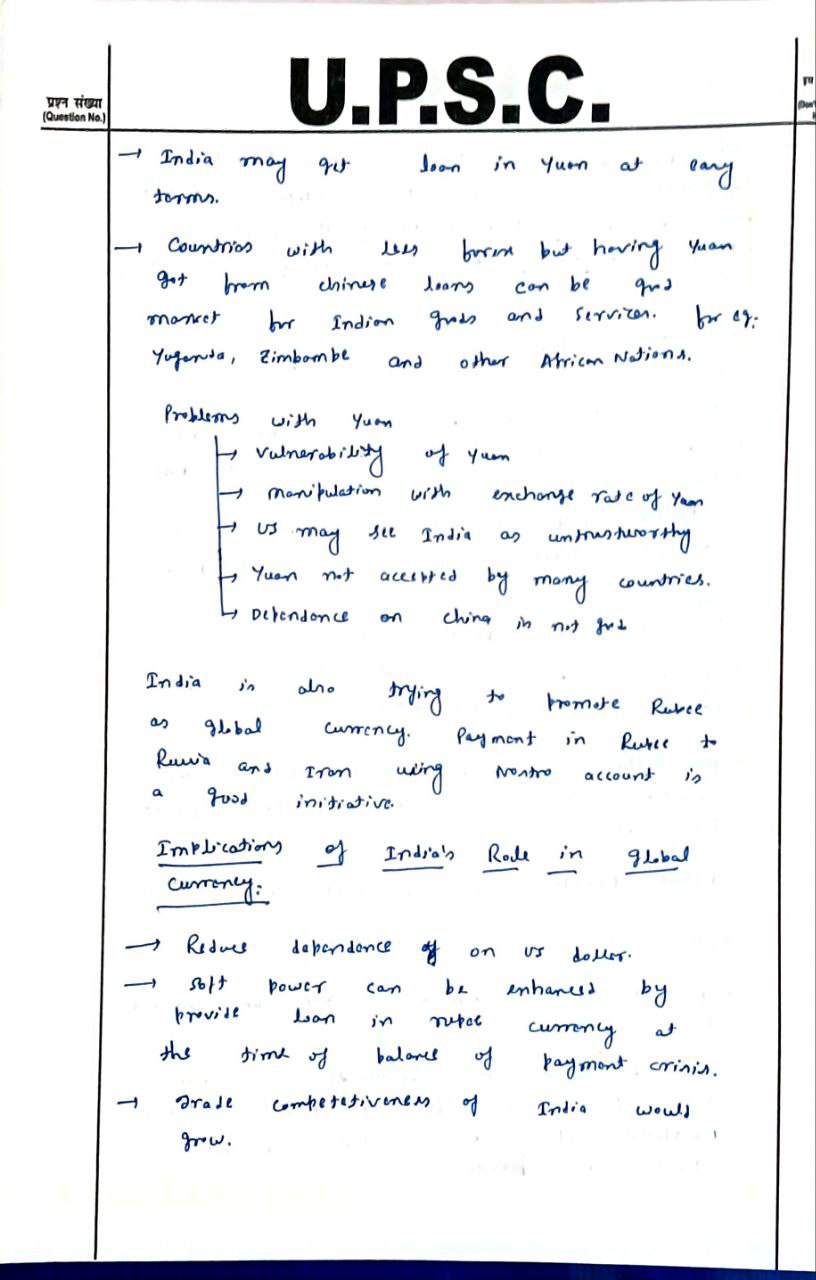 U.P.S.C.
प्रश्न संख्या
(Question No.)
(Don't
→ India may get loan in Yuan at easy
terms.
→ Countries with less forex but having Yuan
got from chinese loans can be good
market for Indian goods and services. for eg:
Yuganda, Zimbombe and other African Nations.
Problems with Yuan
→ Vulnerability of Yuan
→ manipulation with exchange rate of Yuan
→ US may see India as untrustworthy
→ Yuan not accepted by many countries.
→ Dependence on china is not good
India is also trying to promote Rupee
as global currency. Payment in Rupee to
Russia and Iran using Nostro account is
a good initiative.
Implications of India's Role in global
currency:
→ Reduce dependence on US dollar.
→ soft power can be enhanced by
provide loan in rupee currency at
the time of balance of payment crisis.
→ Trade competetiveness of India would
grow.